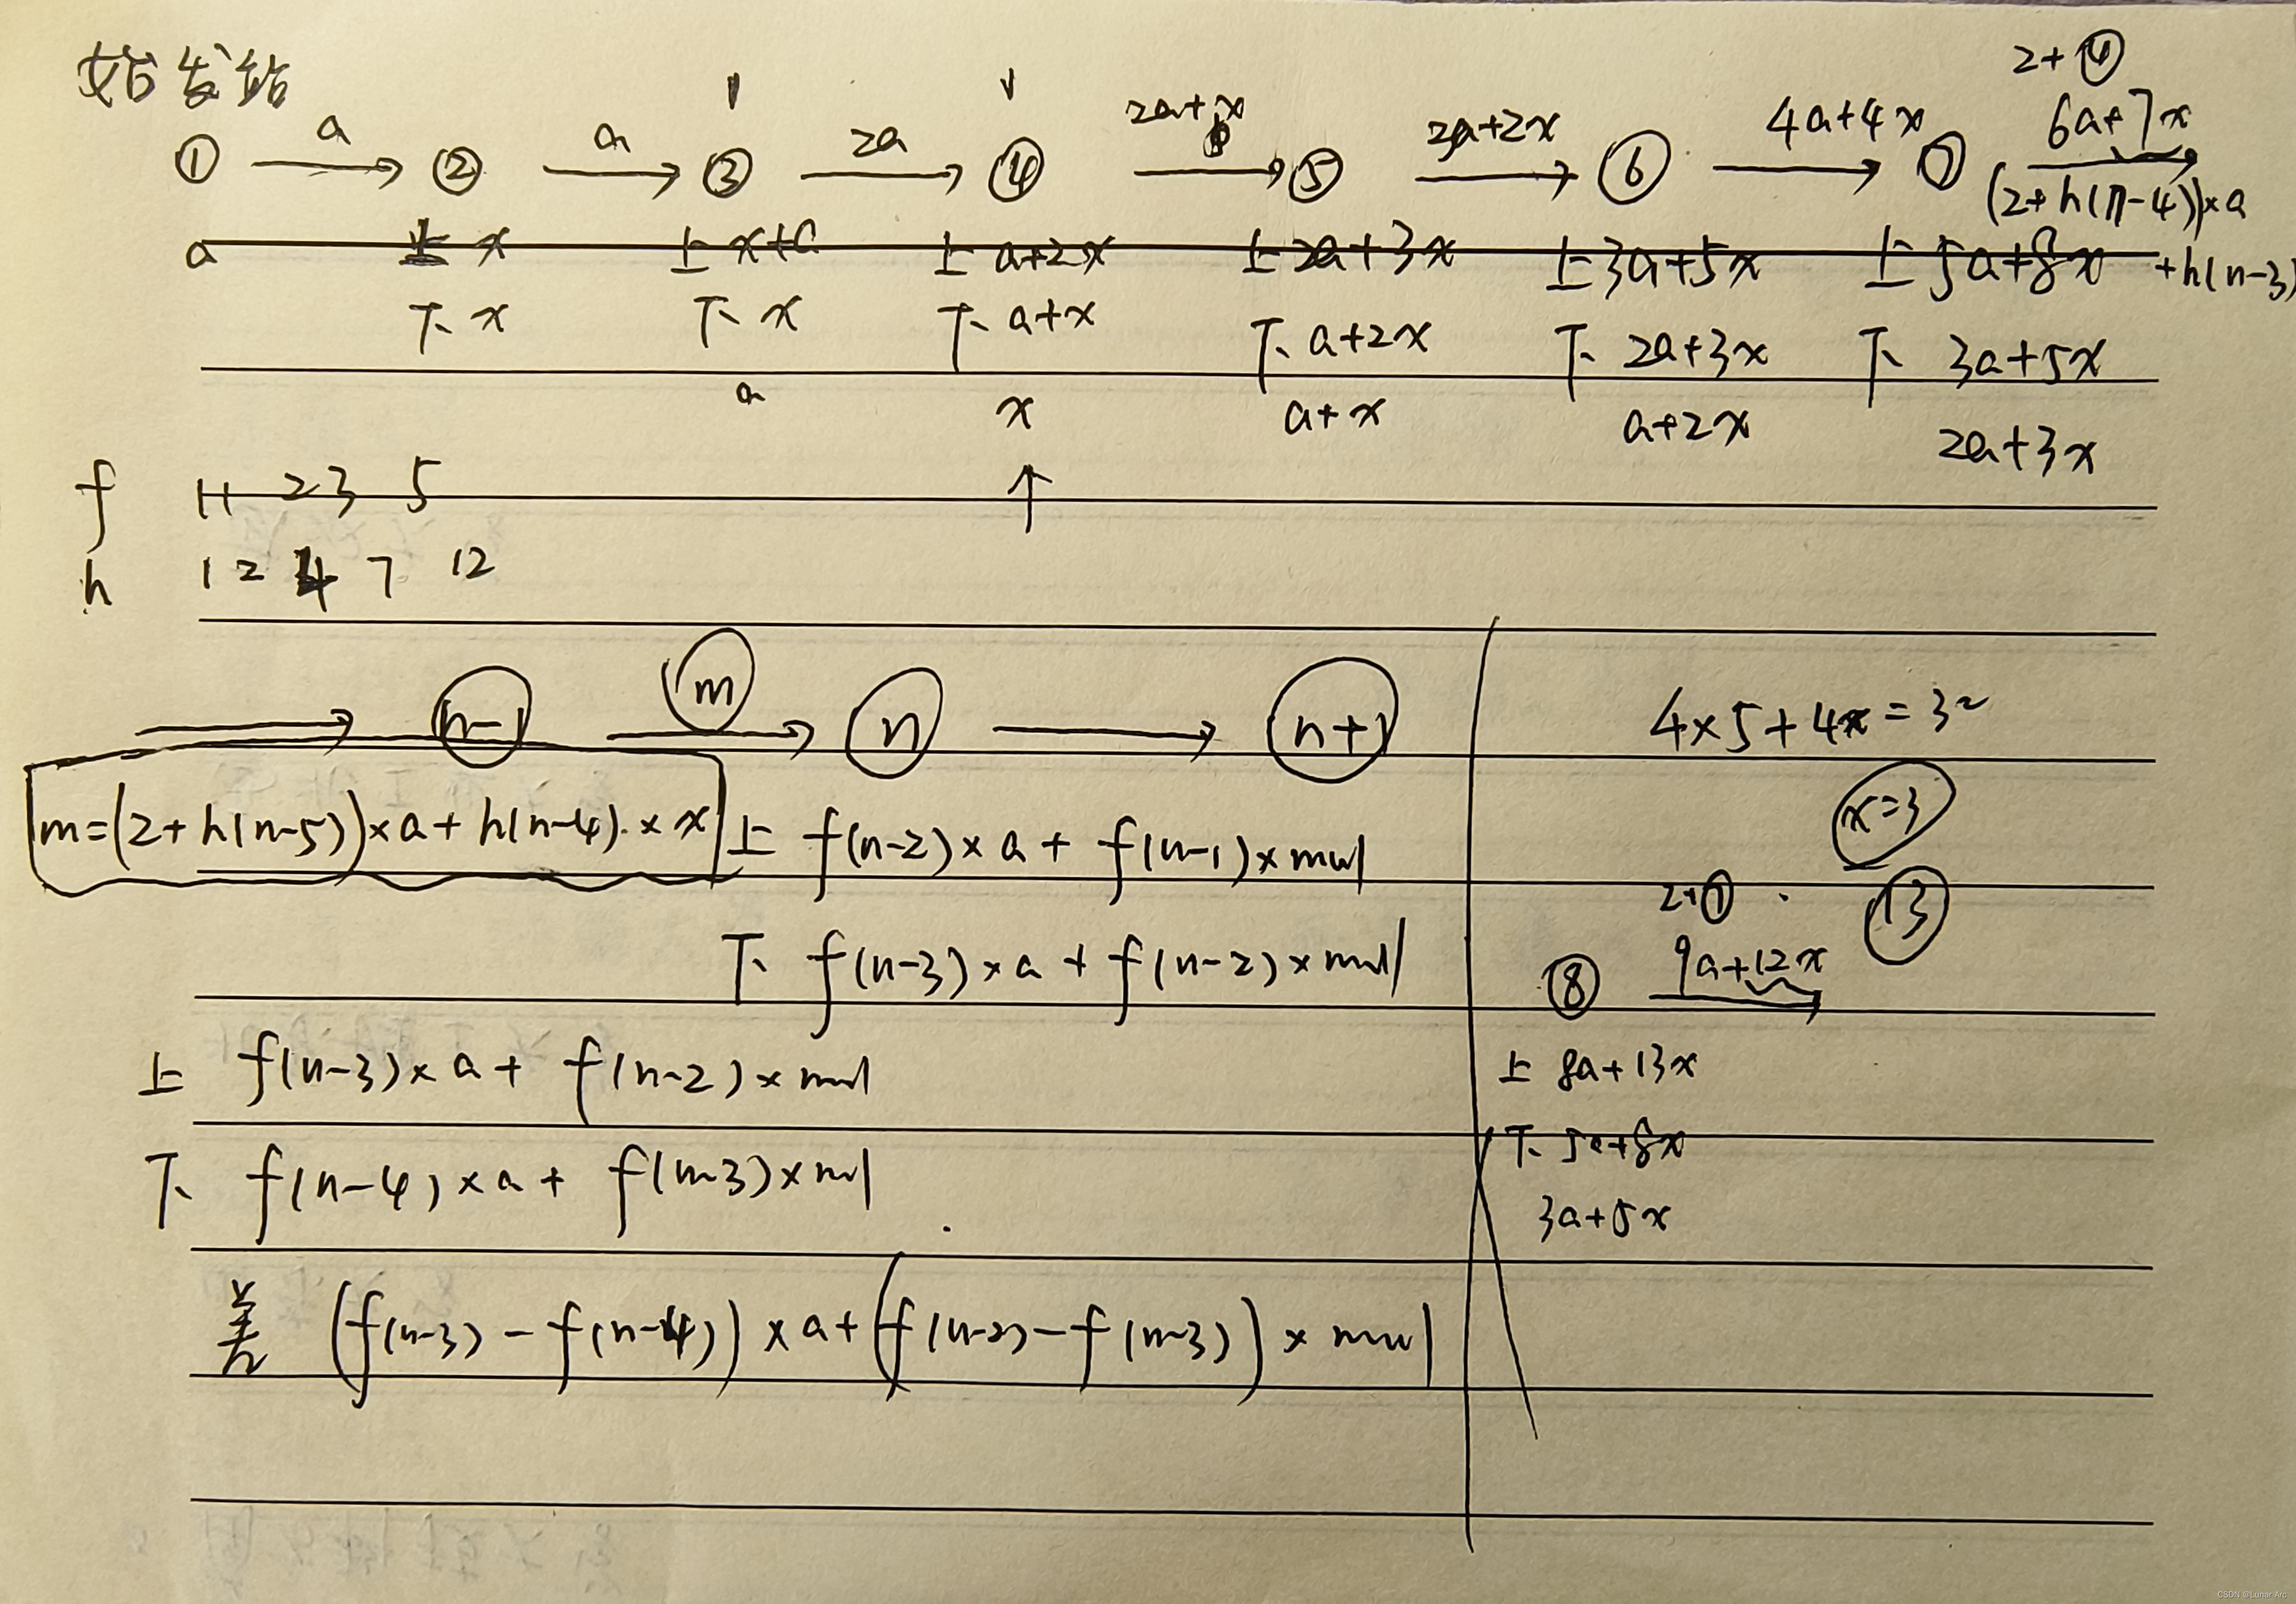 始发站
2+④
① a→ ② a→ ③ 2a→ ④ 2a+x→ ⑤ 2a+2x→ ⑥ 4a+4x→ ⑦ 6a+7x→
(2+h(n-4))×a
a 上 x 上 x+a 上 a+2x 上 2a+3x 上 3a+5x 上 5a+8x +h(n-3)
下 x 下 x 下 a+x 下 a+2x 下 2a+3x 下 3a+5x
a x a+x a+2x 2a+3x
↑
f 1 1 2 3 5
h 1 2 4 7 12
→ n-1 m→ n → n+1
m=(2+h(n-5))×a+h(n-4)×x
上 f(n-2)×a + f(n-1)×mul
下 f(n-3)×a + f(n-2)×mul
上 f(n-3)×a + f(n-2)×mul
下 f(n-4)×a + f(n-3)×mul
差 (f(n-3)-f(n-4))×a+(f(n-2)-f(n-3))×mul
4×5+4x=32
x=3
2+⑦ 13
⑧ 9a+12x→
上 8a+13x
下 5a+8x
3a+5x
CSDN @Lunar Arc